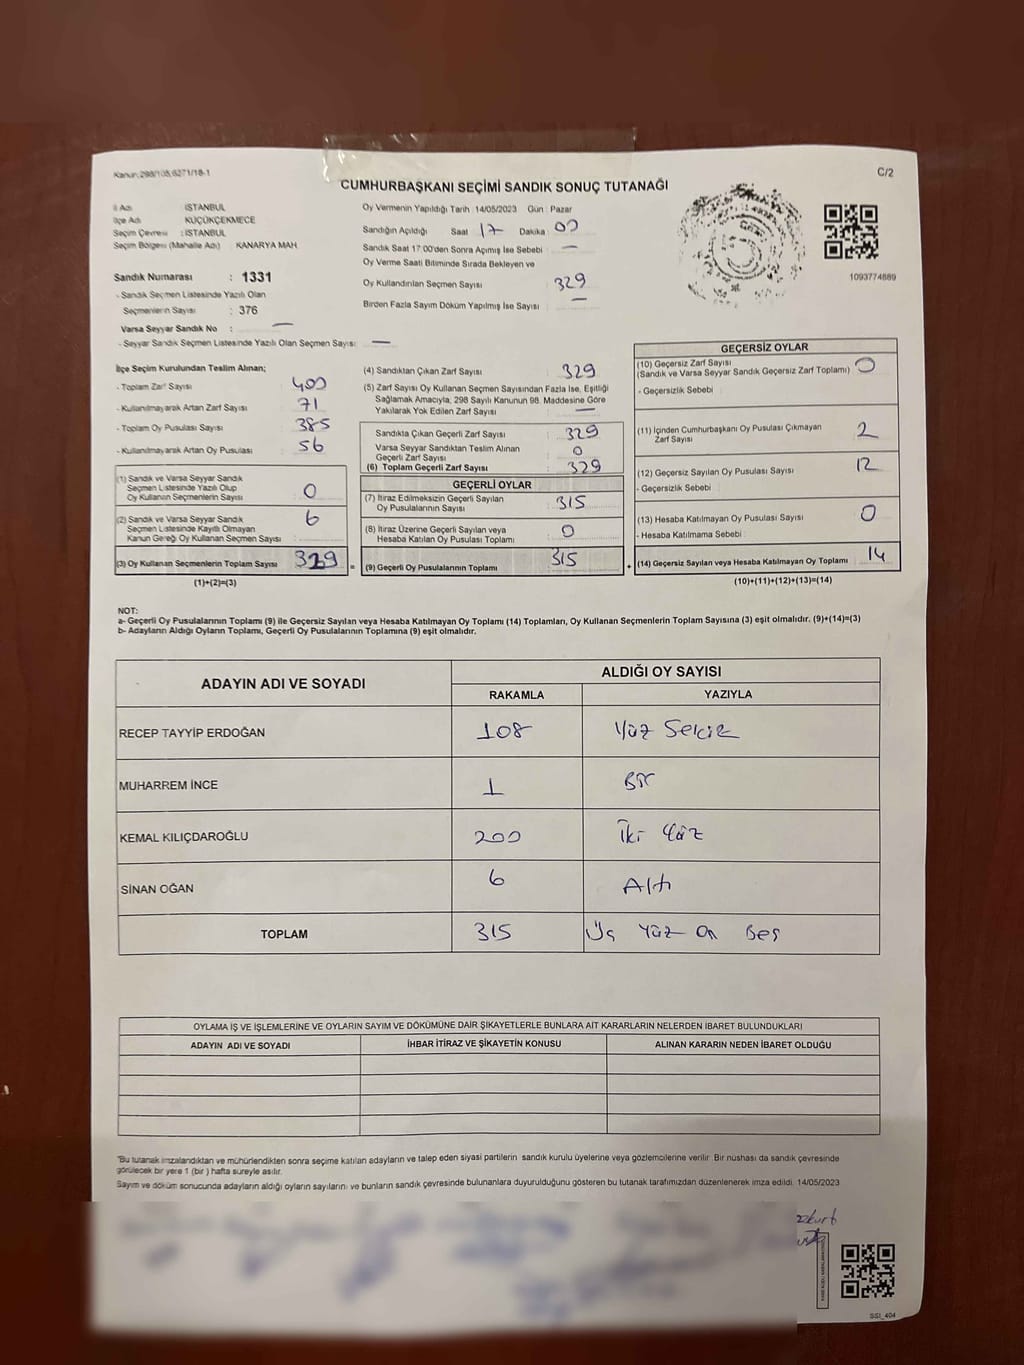 Kanun:298/105,6271/18-1
C/2
CUMHURBAŞKANI SEÇİMİ SANDIK SONUÇ TUTANAĞI
İl Adı : İSTANBUL
İlçe Adı : KÜÇÜKÇEKMECE
Seçim Çevresi : İSTANBUL
Seçim Bölgesi (Mahalle Adı) : KANARYA MAH.
Sandık Numarası : 1331
- Sandık Seçmen Listesinde Yazılı Olan
Seçmenlerin Sayısı : 376
Varsa Seyyar Sandık No : —
- Seyyar Sandık Seçmen Listesinde Yazılı Olan Seçmen Sayısı : —
Oy Vermenin Yapıldığı Tarih : 14/05/2023 Gün : Pazar
Sandığın Açıldığı Saat 17 Dakika : 00
Sandık Saat 17:00'den Sonra Açılmış İse Sebebi : —
Oy Verme Saati Bitiminde Sırada Bekleyen ve
Oy Kullandırılan Seçmen Sayısı : 329
Birden Fazla Sayım Döküm Yapılmış İse Sayısı : —
1093774889
İlçe Seçim Kurulundan Teslim Alınan;
- Toplam Zarf Sayısı : 400
- Kullanılmayarak Artan Zarf Sayısı : 71
- Toplam Oy Pusulası Sayısı : 385
- Kullanılmayarak Artan Oy Pusulası : 56
(1) Sandık ve Varsa Seyyar Sandık
Seçmen Listesinde Yazılı Olup
Oy Kullanan Seçmenlerin Sayısı : 0
(2) Sandık ve Varsa Seyyar Sandık
Seçmen Listesinde Kayıtlı Olmayan
Kanun Gereği Oy Kullanan Seçmen Sayısı : 6
(3) Oy Kullanan Seçmenlerin Toplam Sayısı : 329 =
(1)+(2)=(3)
(4) Sandıktan Çıkan Zarf Sayısı : 329
(5) Zarf Sayısı Oy Kullanan Seçmen Sayısından Fazla İse, Eşitliği
Sağlamak Amacıyla; 298 Sayılı Kanunun 98. Maddesine Göre
Yakılarak Yok Edilen Zarf Sayısı : —
Sandıkta Çıkan Geçerli Zarf Sayısı : 329
Varsa Seyyar Sandıktan Teslim Alınan
Geçerli Zarf Sayısı : 0
(6) Toplam Geçerli Zarf Sayısı : 329
GEÇERLİ OYLAR
(7) İtiraz Edilmeksizin Geçerli Sayılan
Oy Pusulalarının Sayısı : 315
(8) İtiraz Üzerine Geçerli Sayılan veya
Hesaba Katılan Oy Pusulası Toplamı : 0
(9) Geçerli Oy Pusulalarının Toplamı : 315 +
GEÇERSİZ OYLAR
(10) Geçersiz Zarf Sayısı : 0
(Sandık ve Varsa Seyyar Sandık Geçersiz Zarf Toplamı)
- Geçersizlik Sebebi :
(11) İçinden Cumhurbaşkanı Oy Pusulası Çıkmayan
Zarf Sayısı : 2
(12) Geçersiz Sayılan Oy Pusulası Sayısı : 12
- Geçersizlik Sebebi :
(13) Hesaba Katılmayan Oy Pusulası Sayısı : 0
- Hesaba Katılmama Sebebi :
(14) Geçersiz Sayılan veya Hesaba Katılmayan Oy Toplamı : 14
(10)+(11)+(12)+(13)=(14)
NOT:
a- Geçerli Oy Pusulalarının Toplamı (9) ile Geçersiz Sayılan veya Hesaba Katılmayan Oy Toplamı (14) Toplamları, Oy Kullanan Seçmenlerin Toplam Sayısına (3) eşit olmalıdır. (9)+(14)=(3)
b- Adayların Aldığı Oyların Toplamı, Geçerli Oy Pusulalarının Toplamına (9) eşit olmalıdır.
ADAYIN ADI VE SOYADI
ALDIĞI OY SAYISI
RAKAMLA YAZIYLA
RECEP TAYYİP ERDOĞAN 108 Yüz Sekiz
MUHARREM İNCE 1 Bir
KEMAL KILIÇDAROĞLU 200 İki Yüz
SİNAN OĞAN 6 Altı
TOPLAM 315 Üç Yüz On Beş
OYLAMA İŞ VE İŞLEMLERİNE VE OYLARIN SAYIM VE DÖKÜMÜNE DAİR ŞİKAYETLERLE BUNLARA AİT KARARLARIN NELERDEN İBARET BULUNDUKLARI
ADAYIN ADI VE SOYADI İHBAR İTİRAZ VE ŞİKAYETİN KONUSU ALINAN KARARIN NEDEN İBARET OLDUĞU
"Bu tutanak imzalandıktan ve mühürlendikten sonra seçime katılan adayların ve talep eden siyasi partilerin sandık kurulu üyelerine veya gözlemcilerine verilir. Bir nüshası da sandık çevresinde
görülecek bir yere 1 (bir ) hafta süreyle asılır.
Sayım ve döküm sonucunda adayların aldığı oyların sayılarını ve bunların sandık çevresinde bulunanlara duyurulduğunu gösteren bu tutanak tarafımızdan düzenlenerek imza edildi. 14/05/2023
SSI_404